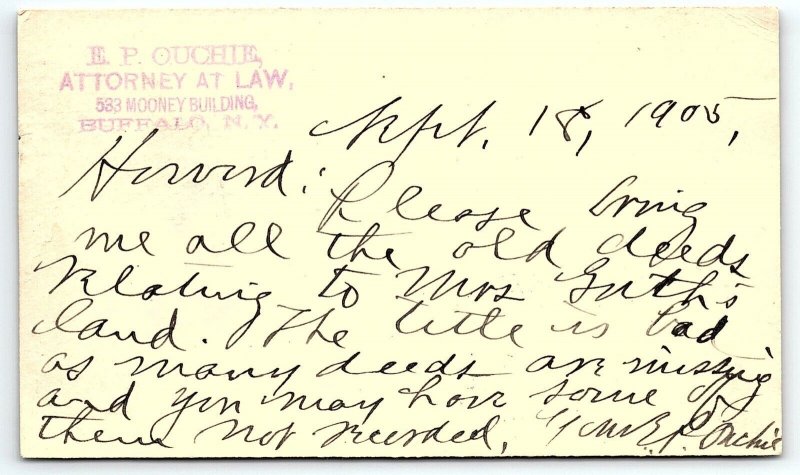 E. P. OUCHIE,
ATTORNEY AT LAW,
533 MOONEY BUILDING,
BUFFALO, N. Y.
Sept. 18, 1905,
Howard: Please bring
me all the old deeds
relating to Mrs Guth's
land. The title is bad
as many deeds are missing
and you may have some of
them not recorded, E.P. Ouchie